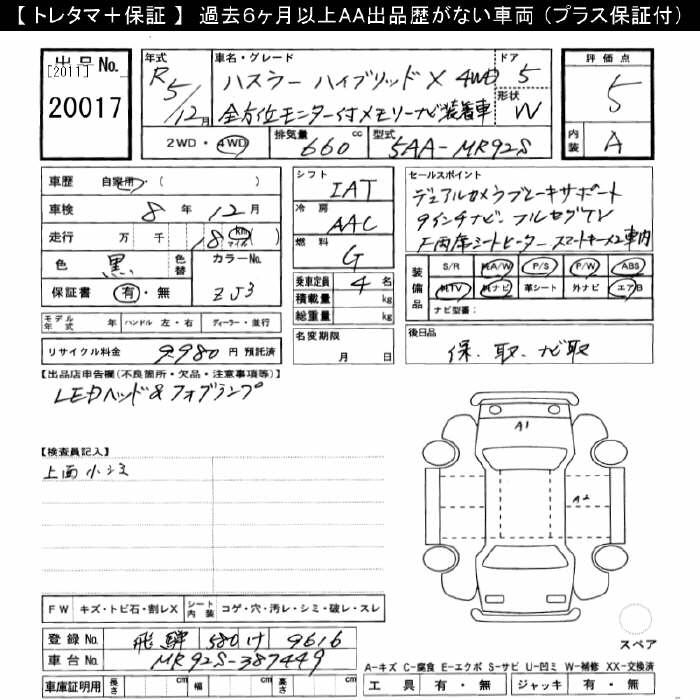 【 トレタマ＋保証 】 過去6ヶ月以上AA出品歴がない車両（プラス保証付）
出品No.
[2011]
20017
年式
R5/12月
車名・グレード
ハスラー ハイブリッドX 4WD
全方位モニター付メモリーナビ装着車
ドア
5
形状
W
2WD・4WD
排気量
660cc
型式
5AA-MR92S
評価点
5
内装
A
車歴 自家用 ( )
車検 8年 12月
走行 万 千 18 km マイル ( )
色 黒 色替 カラーNo.
保証書 有・無 ZJ3
モデル年式 年 ハンドル 左・右 ディーラー・並行
リサイクル料金 9980 円 預託済
シフト
IAT
冷房
AAC
燃料
G
乗車定員 4名
積載量 kg
総重量 kg
名変期限
月 日
セールスポイント
デュアルカメラブレーキサポート
9インチナビ、フルセグTV
F両席シートヒーター スマートキー×2車内
装備品
S/R 純A/W P/S P/W ABS
純TV 純ナビ 革シート 外ナビ エアB
ナビ型番：
後日品
保、取、ナビ取
【出品店申告欄(不良箇所・欠品・注意事項等)】
LEDヘッド&フォグランプ
【検査員記入】
上面小キズ
A1
A2
FW キズ・トビ石・割レX シート内装 コゲ・穴・汚レ・シミ・破レ・スレ
登録No. 飛騨 580 け 9616
車台No. MR92S-387449
車庫証明用 長さ cm 幅 cm 高さ cm
スペア
A-キズ C-腐食 E-エクボ S-サビ U-凹ミ W-補修 XX-交換済
工具 有・無 ジャッキ 有・無